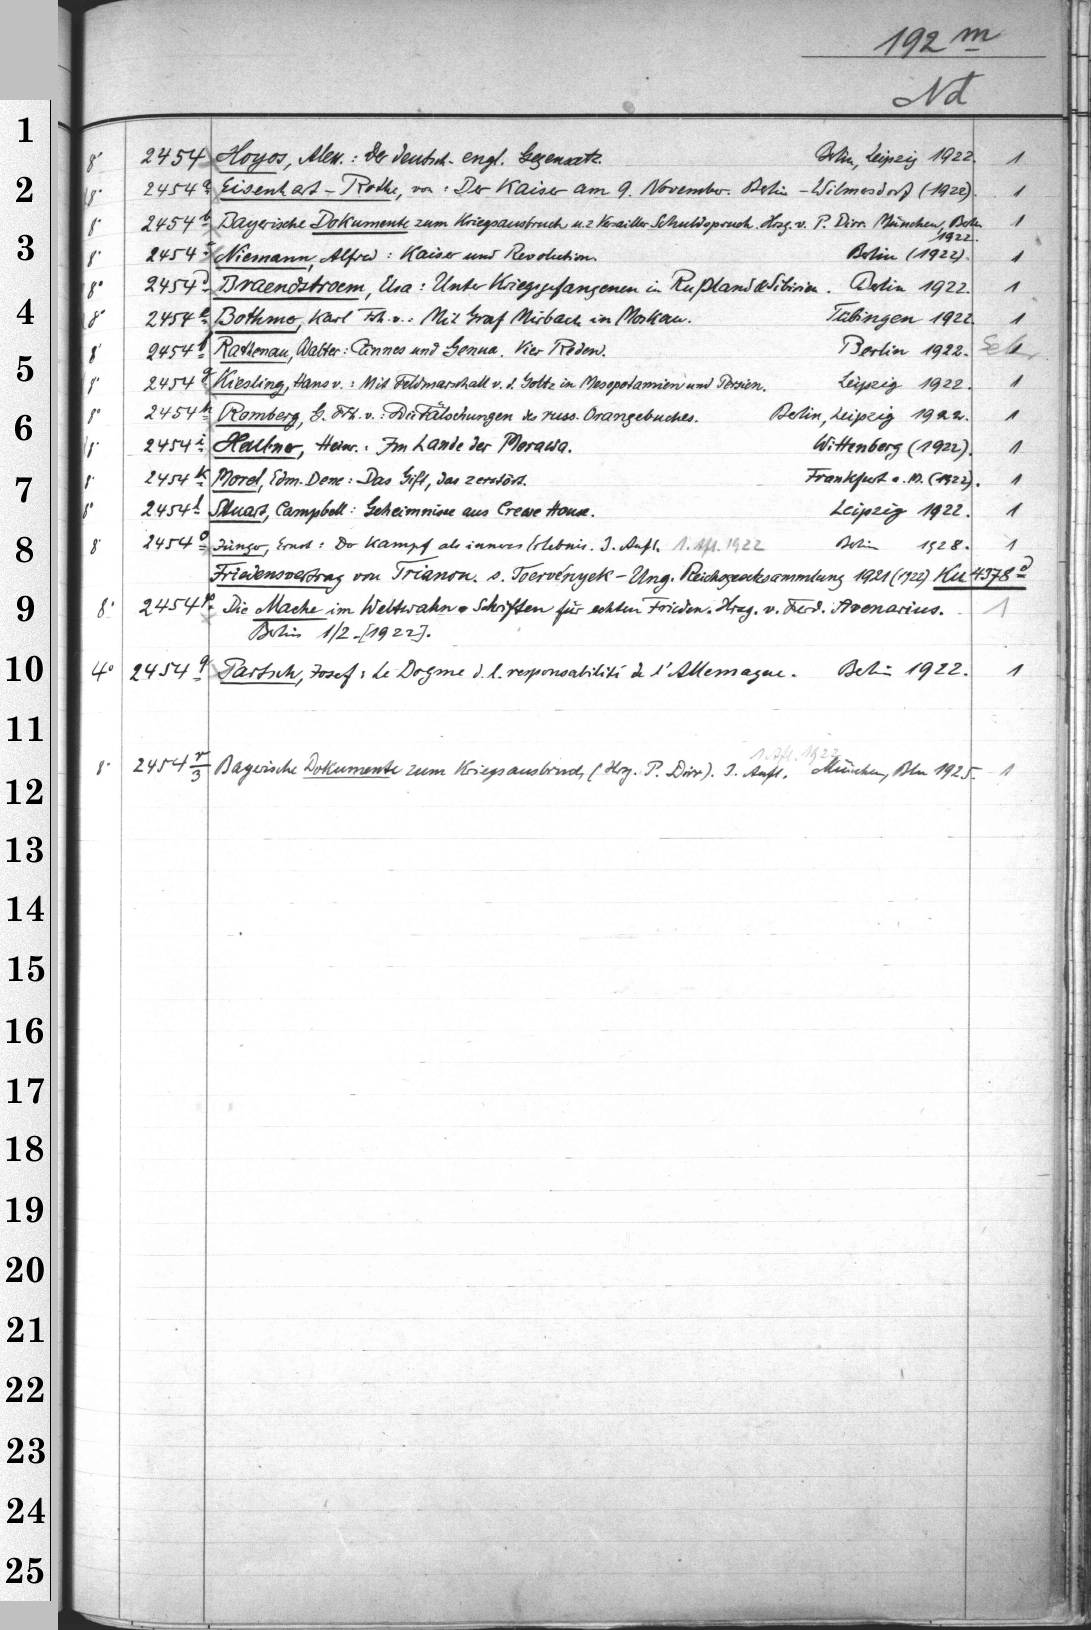 192 m
Nd
1
8° 2454 Hoyos, Alex.: Der deutsch-engl. Gegensatz. Berlin, Leipzig 1922. 1
2
8° 2454 a Eisenhart-Rothe, von: Der Kaiser am 9. November. Berlin-Wilmersdorf (1922). 1
8° 2454 b Bayerische Dokumente zum Kriegsausbruch u. z. Versailler Schuldspruch. Hrsg. v. P. Dirr. München, Berlin 1
1922.
3
8° 2454 c Niemann, Alfred: Kaiser und Revolution. Berlin (1922). 1
8° 2454 d Braendstroem, Elsa: Unter Kriegsgefangenen in Rußland & Sibirien. Berlin 1922. 1
4
8° 2454 e Bothmer, Karl Frh. v.: Mit Graf Mirbach in Moskau. Tübingen 1922 1
8° 2454 f Rathenau, Walter: Cannes und Genua. Vier Reden. Berlin 1922.
5
8° 2454 g Kiesling, Hans v.: Mit Feldmarschall v. d. Goltz in Mesopotamien und Persien. Leipzig 1922. 1
8° 2454 h Romberg, G. Frh. v.: Die Fälschungen des russ. Orangebuches. Berlin, Leipzig 1922. 1
6
8° 2454 i Heinr.: Im Lande der Morawa. Wittenberg (1922). 1
7
8° 2454 k Morel, Edm. Dene: Das Gift, das zerstört. Frankfurt a. M. (1922). 1
8° 2454 l Stuart, Campbell: Geheimnisse aus Crewe House. Leipzig 1922. 1
8
8° 2454 o Jünger, Ernst: Der Kampf als inneres Erlebnis. 3. Aufl. 1. Afl. 1922 Berlin 1928. 1
Friedensvertrag von Trianon. s. Toervények-Ung. Reichsgesetzsammlung 1921 (1922) Ku 4378 d
9
8° 2454 p Die Mache im Weltwahn. Schriften für echten Frieden. Hrsg. v. Ferd. Avenarius. 1
Berlin 1/2. [1922].
10
4° 2454 q Partsch, Josef: Le Dogme d. l. responsabilité de l'Allemagne. Berlin 1922. 1
11
1. Afl. 1922
8° 2454 r/3 Bayerische Dokumente zum Kriegsausbruch, (Hrg. P. Dirr). 3. Aufl. München, Bln 1925. 1
12
13
14
15
16
17
18
19
20
21
22
23
24
25